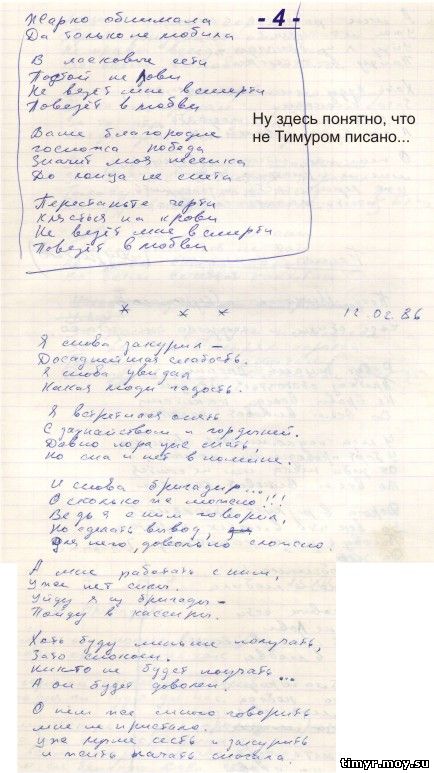 - 4 -
Жарко обнимала
Да только не любила
В ласковые сети
Постой не лови
Не везёт мне в смерти
Повезёт в любви
Ваше благородие
госпожа победа
Значит моя песенка
До конца не спета
Перестаньте черти
Клясться на крови
Не везёт мне в смерти
Повезёт в любви
Ну здесь понятно, что
не Тимуром писано...
* * *
12.02.86
Я снова закурил –
Досаднейшая слабость.
Я снова увидал
Какая люди гадость.
Я встретился опять
С зазнайством и гордыней.
Давно пора уже спать,
Но сна и нет в помине.
И снова бригадир...
О сколько же можно!!!
Ведь я с ним говорил,
Но сделать вывод,
Для него, довольно сложно.
А мне работать с ним,
Уже нет силы.
Уйду я из бригады –
Пойду в кассиры.
Хоть буду меньше получать,
Зато спокоен.
Никто не будет поучать...
А он будет доволен.
О нём же много говорить
мне не пристало.
уже лучше сесть и закурить
и жить начать сначала.
timyr.moy.su